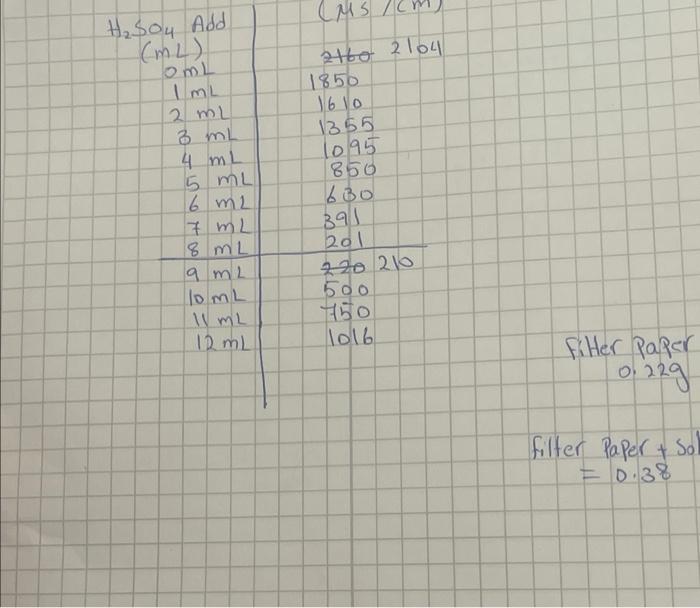 H₂SO₄ Add (MS / CM)
(mL)
0 mL 2160 2104
1 mL 1850
2 mL 1610
3 mL 1355
4 mL 1095
5 mL 850
6 mL 630
7 mL 391
8 mL 201
9 mL 220 210
10 mL 500
11 mL 750
12 mL 1016
Filter Paper
0.22g
filter Paper + Sol
= 0.38